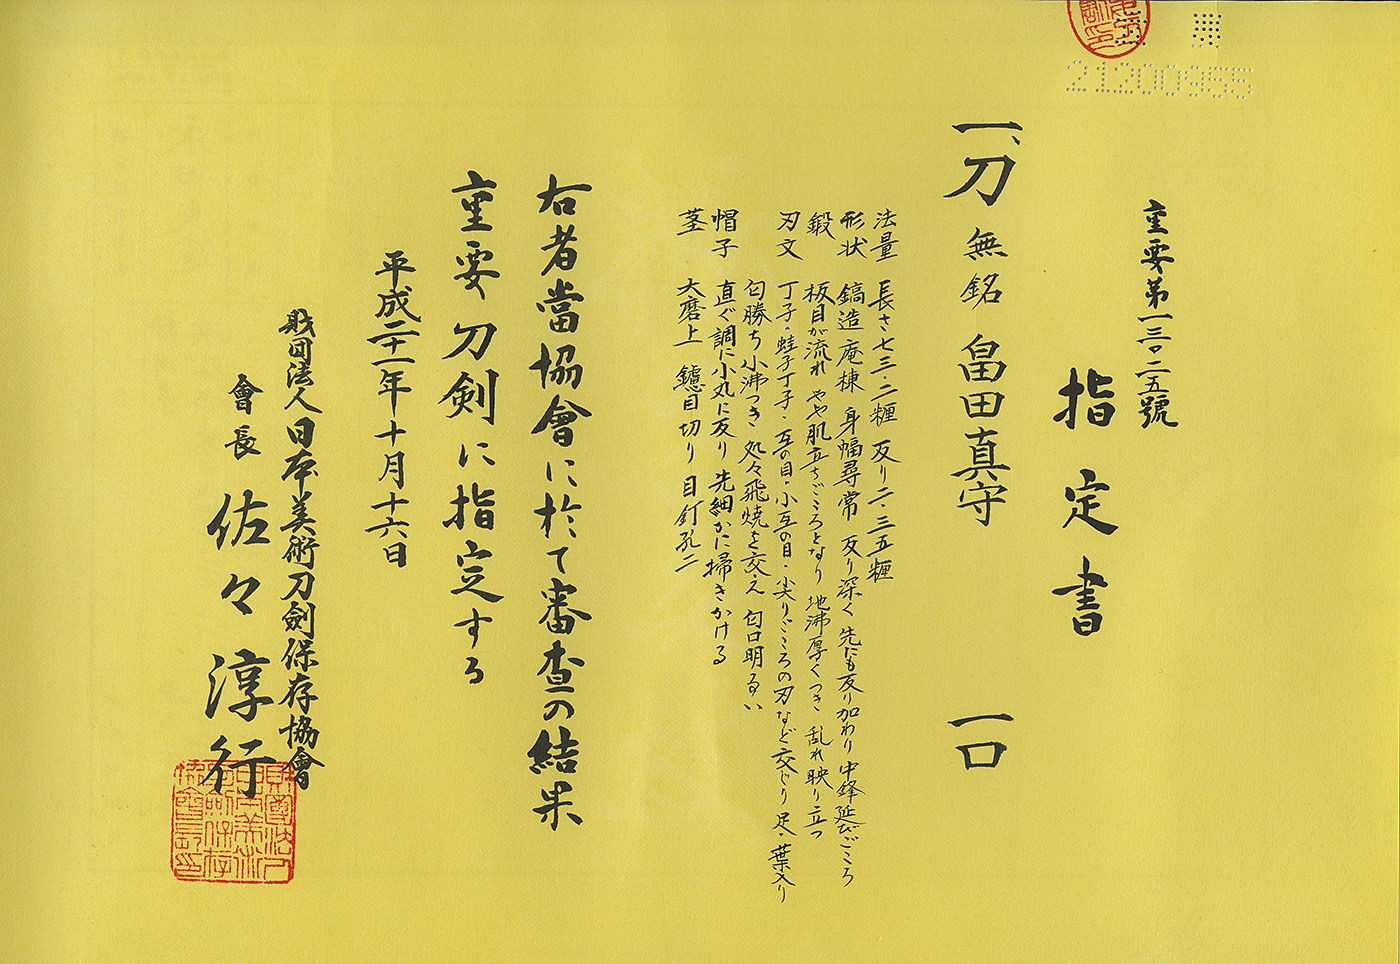 21200955
重要第一三〇二五號
指定書
一、刀 無銘 畠田真守 一口
法量 長さ七三・二糎 反り二・三五糎
形状 鎬造 庵棟 身幅尋常 反り深く 先にも反り加わり 中鋒延びごころ
鍛 板目が流れ やや肌立ちごころとなり 地沸厚くつき 乱れ映り立つ
刃文 丁子・蛙子丁子・互の目・小互の目・尖りごころの刃など交じり 足・葉入り
匂勝ち小沸つき 処々飛焼を交え 匂口明るい
帽子 直ぐ調に小丸に反り 先細かに掃きかける
茎 大磨上 鑢目切り 目釘孔二
右者當協會に於て審査の結果
重要刀剣に指定する
平成二十一年十月十六日
財団法人日本美術刀劍保存協會
會長 佐々淳行